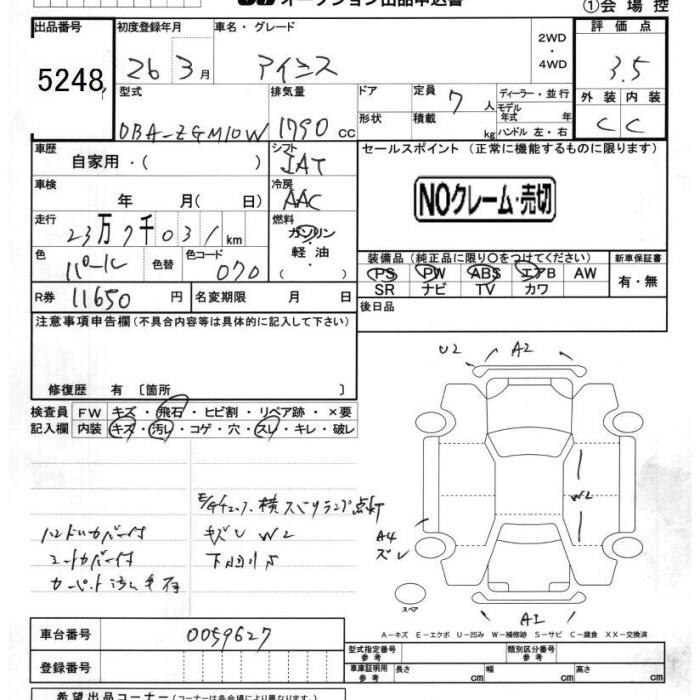 オークション出品申込書
①会場控
出品番号 初度登録年月 車名・グレード 2WD・4WD 評価点
5248 26 3月 アイシス 3.5
型式 排気量 ドア 定員 7人 ディーラー・並行 外装 内装
DBA-ZGM10W 1790cc 形状 積載 kg モデル年式 年 ハンドル 左・右 C C
車歴 シフト セールスポイント (正常に機能するものに限ります)
自家用・( ) IAT
車検 冷房 NOクレーム・売切
年 月( 日) AAC
走行 燃料
23万7千031km ガソリン・軽油
色 色替 色コード ( ) 装備品 (純正品に限り○をつけてください) 新車保証書
パール 070 PS PW ABS エアB AW 有・無
SR ナビ TV カワ
R券 11650円 名変期限 月 日 後日品
注意事項申告欄 (不具合内容等は具体的に記入して下さい)
U2 A2
修復歴 有 〔箇所 〕
検査員 FW キズ・飛石・ヒビ割・リペア跡・×要
記入欄 内装 キズ・汚レ・コゲ・穴・スレ・キレ・破レ
W2
E/Gチェック、横スベリランプ点灯
ハンドルカバー付 キズU W2 A4
シートカバー付 下回りS ズレ
スペア
A2
車台番号 0059627
A-キズ E-エクボ U-凹み W-補修跡 S-サビ C-腐食 XX-交換済
型式指定番号 参考 類別区分番号 参考
登録番号 車庫証明用 参考 長さ cm 幅 cm 高さ cm
希望出品コーナー (コーナーは各会場により異なります)